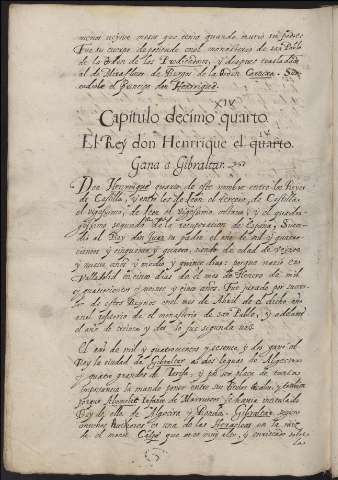 menos veinte meses que tenia quando murio su padre.
Fue su cuerpo depositado en el monasterio de san Pablo
de la Orden de los Predicadores, y despues trasladado
al de Miraflores de Burgos de la Orden Cartuxa. Suc-
cediole el Principe don Henrrique.
XIV
Capitulo decimo quarto.
IV
El Rey don Henrrique el quarto.
Gana a Gibraltar.
Don Henrrique quarto de este nombre entre los Reyes
de Castilla, y entre los de Leon el tercero, de Castilla
el vigesimo, de Leon el vigesimo octavo, y el quadra-
gesimo segundo de la recuperacion de España, Suce-
dio al Rey don Juan su padre el año de mil y quatro-
cientos y cinquenta y quatro, siendo de edad de veynte
y nueve años y medio y quinze dias: porque nacio en
Valladolid a cinco dias de el mes de Henero de mil
y quatrocientos y veinte y cinco años. Fue jurado por succes-
sor de estos Reynos en el mes de Abril de el dicho año
en el refitorio de el monasterio de san Pablo, y adelante
el año de treinta y dos lo fue segunda vez.
El año de mil y quatrocientos y sesenta y dos gano el
Rey la ciudad de Gibraltar a dos leguas de Algezira
y quatro grandes de Tarifa, y por ser plaza de tanta
importancia la mando poner entre sus titulos Reales, y tambien
porque Abomelic Infante de Marruecos se havia intitulado
Rey de ella, de Algezira y Ronda. Gibraltar segun
muchos Auctores es una de las Heracleas en la raiz
de el monte Calpe que es muy alto, y enriscado sobre
la